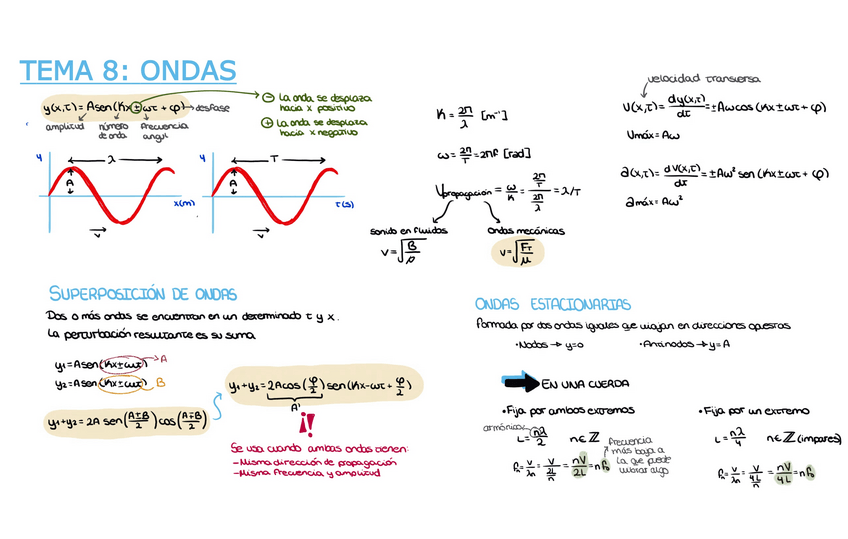 TEMA 8: ONDAS
y(x,t) = A sen(Kx ± ωt + φ) → desfase
amplitud
número de onda
frecuencia angul
⊖ La onda se desplaza
hacia x positivo
⊕ La onda se desplaza
hacia x negativo
y
λ
A
x(m)
v
y
T
A
t(s)
v
K = 2π/λ [m⁻¹]
ω = 2π/T = 2πf [rad]
Vpropagación = ω/K = (2π/T)/(2π/λ) = λ/T
sonido en fluidos
v = √(B/ρ)
ondas mecánicas
v = √(FT/μ)
velocidad transversa
v(x,t) = dy(x,t)/dt = ±Aω cos(Kx ± ωt + φ)
Vmáx = Aω
a(x,t) = dv(x,t)/dt = ±Aω² sen(Kx ± ωt + φ)
amáx = Aω²
SUPERPOSICIÓN DE ONDAS
Dos o más ondas se encuentran en un determinado t y x.
La perturbación resultante es su suma
y1 = A sen(Kx ± ωt) → A
y2 = A sen(Kx ± ωt) B
y1 + y2 = 2A sen((A±B)/2) cos((A∓B)/2)
y1 + y2 = 2A cos(φ/2) sen(Kx - ωt + φ/2)
A'
¡!
Se usa cuando ambas ondas tienen:
- Misma dirección de propagación
- Misma frecuencia y amplitud
ONDAS ESTACIONARIAS
Formada por dos ondas iguales que viajan en direcciones opuestas
• Nodos → y=0
• Antinodos → y=A
EN UNA CUERDA
• Fija por ambos extremos
armónicos
L = nλ/2 n∈ℤ
fn = V/λn = V/(2L/n) = nV/2L = n f0
frecuencia
más baja a
la que puede
vibrar algo
• Fija por un extremo
L = nλ/4 n∈ℤ (impares)
fn = V/λn = V/(4L/n) = nV/4L = n f0